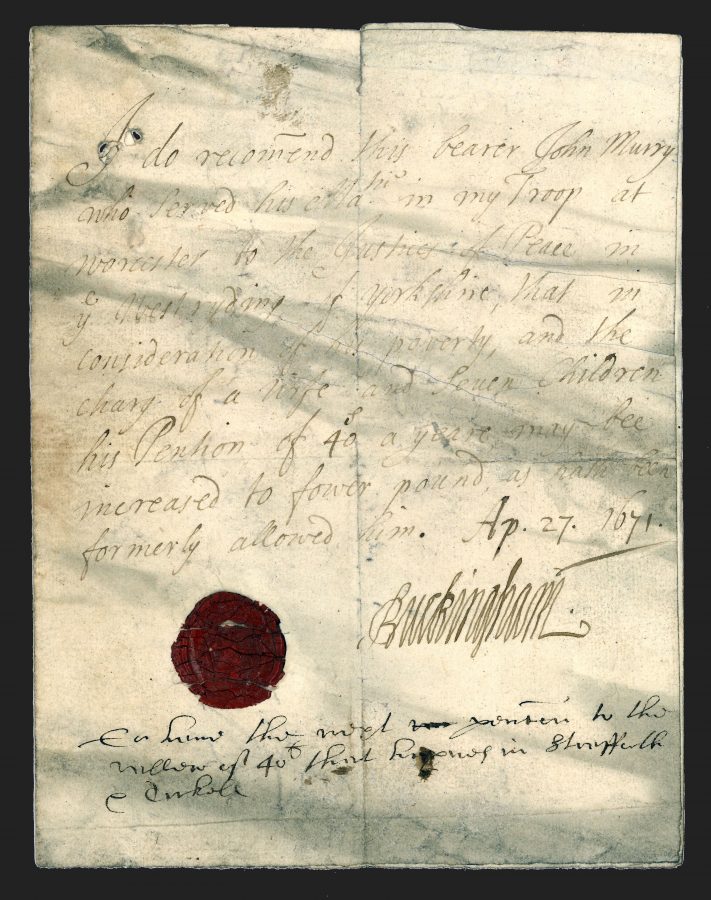 I do recom̄end this bearer John Murry
who served his Ma:tie in my Troop at
worcester to the Justices of Peace in
ye Westryding of Yorkshire, that in
consideration of his poverty, and the
charg of a wife and Seven Children
his Pention of 40s a yeare, may bee
increased to fower pound, as hath been
formerly allowed him. Ap. 27. 1671.
Buckingham.
the next to the
of 40s that in